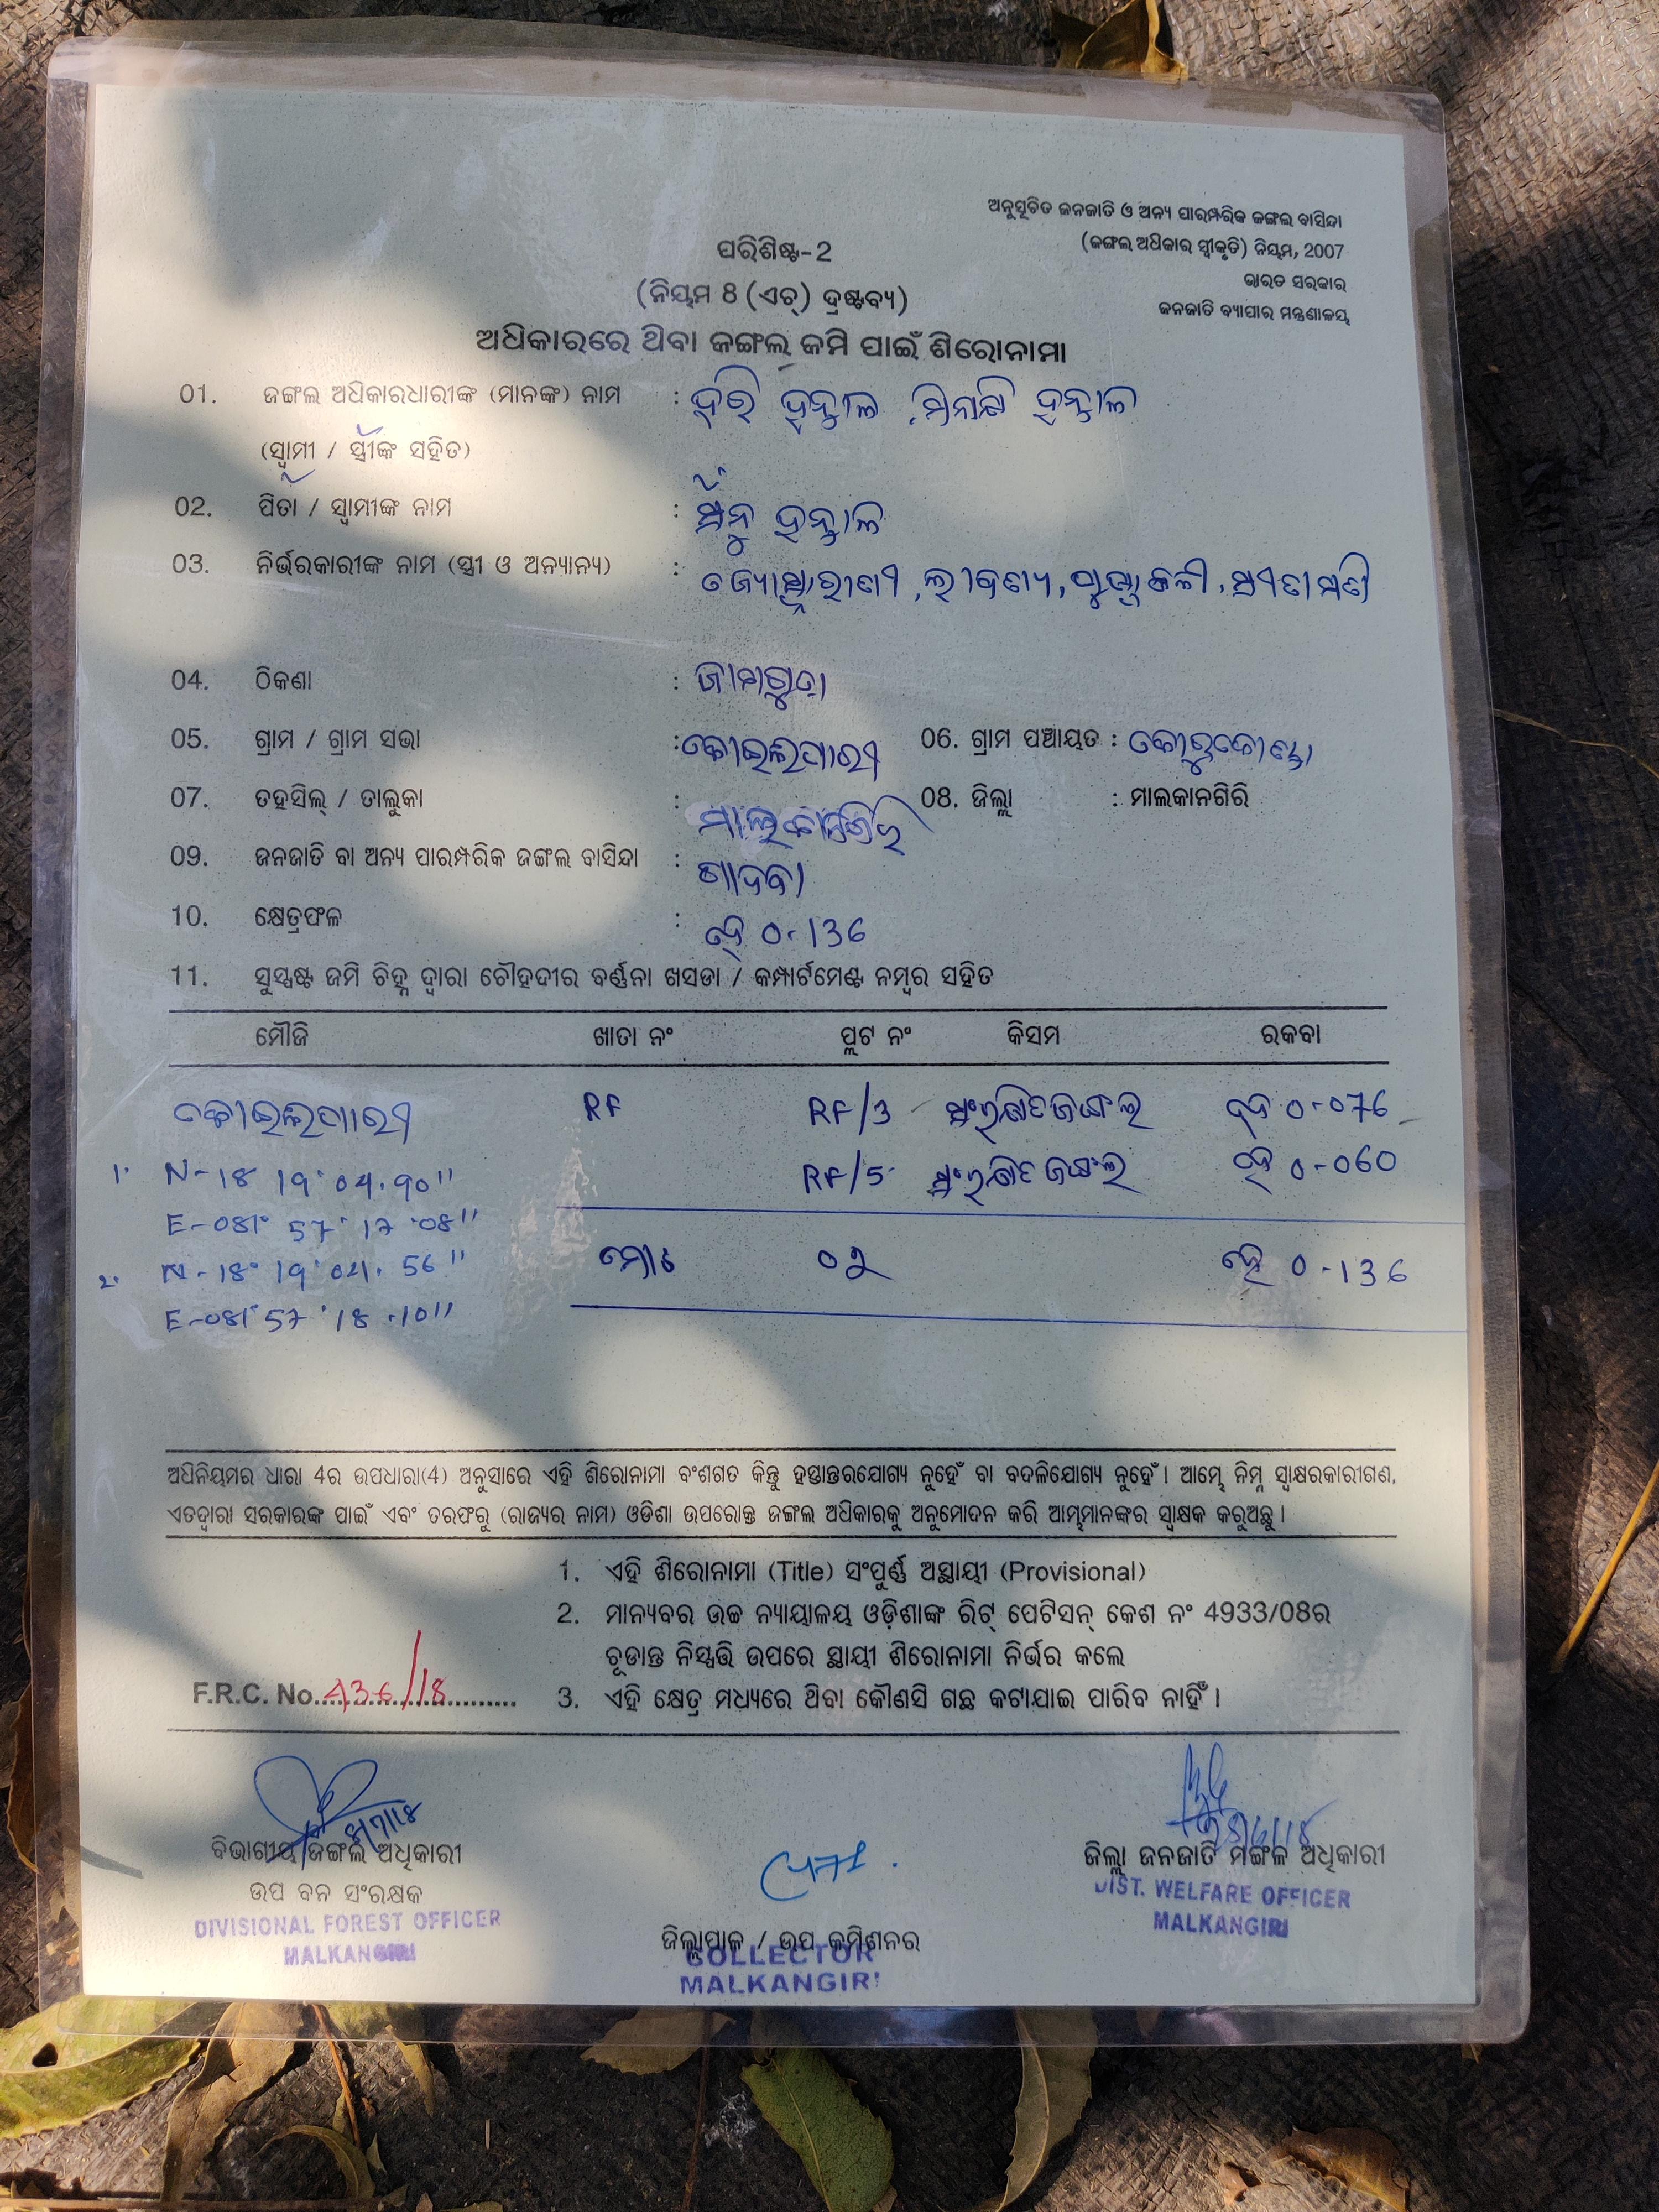 ଅନୁସୂଚିତ ଜନଜାତି ଓ ଅନ୍ୟ ପାରମ୍ପରିକ ଜଙ୍ଗଲ ବାସିନ୍ଦା
(ଜଙ୍ଗଲ ଅଧିକାର ସ୍ୱୀକୃତି) ନିୟମ, 2007
ଭାରତ ସରକାର
ଜନଜାତି ବ୍ୟାପାର ମନ୍ତ୍ରଣାଳୟ
ପରିଶିଷ୍ଟ-2
(ନିୟମ 8 (ଏଚ୍) ଦ୍ରଷ୍ଟବ୍ୟ)
ଅଧିକାରରେ ଥିବା ଜଙ୍ଗଲ ଜମି ପାଇଁ ଶିରୋନାମା
01. ଜଙ୍ଗଲ ଅଧିକାରଧାରୀଙ୍କ (ମାନଙ୍କ) ନାମ : ହରି ହନ୍ତାଳ ,ମିନାକ୍ଷି ହନ୍ତାଳ
(ସ୍ୱାମୀ / ସ୍ତ୍ରୀଙ୍କ ସହିତ)
02. ପିତା / ସ୍ୱାମୀଙ୍କ ନାମ : ହନ୍ତାଳ
03. ନିର୍ଭରକାରୀଙ୍କ ନାମ (ସ୍ତ୍ରୀ ଓ ଅନ୍ୟାନ୍ୟ) :
04. ଠିକଣା :
05. ଗ୍ରାମ / ଗ୍ରାମ ସଭା : କୋଇଲିପାରୀ 06. ଗ୍ରାମ ପଞ୍ଚାୟତ : କୋରୁକୋଣ୍ଡା
07. ତହସିଲ୍ / ତାଲୁକା : ମାଲକାନଗିରି 08. ଜିଲ୍ଲା : ମାଲକାନଗିରି
09. ଜନଜାତି ବା ଅନ୍ୟ ପାରମ୍ପରିକ ଜଙ୍ଗଲ ବାସିନ୍ଦା : ଗାଦବା
10. କ୍ଷେତ୍ରଫଳ : ହେ 0-136
11. ସୁସ୍ପଷ୍ଟ ଜମି ଚିହ୍ନ ଦ୍ୱାରା ଚୌହଦୀର ବର୍ଣ୍ଣନା ଖସଡା / କମ୍ପାର୍ଟମେଣ୍ଟ ନମ୍ବର ସହିତ
ମୌଜି ଖାତା ନଂ ପ୍ଲଟ ନଂ କିସମ ରକବା
କୋଇଲିପାରୀ RF RF/3 ସଂରକ୍ଷିତ ଜଙ୍ଗଲ ହେ 0-076
1. N-18 19' 04.90" RF/5 ସଂରକ୍ଷିତ ଜଙ୍ଗଲ ହେ 0-060
E-081° 57' 17.08"
2. N-18° 19' 04.56" ମୋଟ ୦୨ ହେ 0-136
E-081°57'18.10"
ଅଧିନିୟମର ଧାରା 4ର ଉପଧାରା(4) ଅନୁସାରେ ଏହି ଶିରୋନାମା ବଂଶଗତ କିନ୍ତୁ ହସ୍ତାନ୍ତରଯୋଗ୍ୟ ନୁହେଁ ବା ବଦଳିଯୋଗ୍ୟ ନୁହେଁ। ଆମ୍ଭେ ନିମ୍ନ ସ୍ୱାକ୍ଷରକାରୀଗଣ,
ଏତଦ୍ୱାରା ସରକାରଙ୍କ ପାଇଁ ଏବଂ ତରଫରୁ (ରାଜ୍ୟର ନାମ) ଓଡିଶା ଉପରୋକ୍ତ ଜଙ୍ଗଲ ଅଧିକାରକୁ ଅନୁମୋଦନ କରି ଆମ୍ଭମାନଙ୍କର ସ୍ୱାକ୍ଷକ କରୁଅଛୁ।
1. ଏହି ଶିରୋନାମା (Title) ସଂପୁର୍ଣ୍ଣ ଅସ୍ଥାୟୀ (Provisional)
2. ମାନ୍ୟବର ଉଚ୍ଚ ନ୍ୟାୟାଳୟ ଓଡ଼ିଶାଙ୍କ ରିଟ୍ ପେଟିସନ୍ କେଶ ନଂ 4933/08ର
ଚୂଡାନ୍ତ ନିସ୍ପତ୍ତି ଉପରେ ସ୍ଥାୟୀ ଶିରୋନାମା ନିର୍ଭର କଲେ
F.R.C. No. 436/18 3. ଏହି କ୍ଷେତ୍ର ମଧ୍ୟରେ ଥିବା କୌଣସି ଗଛ କଟାଯାଇ ପାରିବ ନାହିଁ।
ବିଭାଗୀୟ ଜଙ୍ଗଲ ଅଧିକାରୀ
ଉପ ବନ ସଂରକ୍ଷକ
DIVISIONAL FOREST OFFICER
MALKANGIRI
ଜିଲ୍ଲାପାଳ / ଉପ କମିଶନର
COLLECTOR
MALKANGIRI
ଜିଲ୍ଲା ଜନଜାତି ମଙ୍ଗଳ ଅଧିକାରୀ
DIST. WELFARE OFFICER
MALKANGIRI